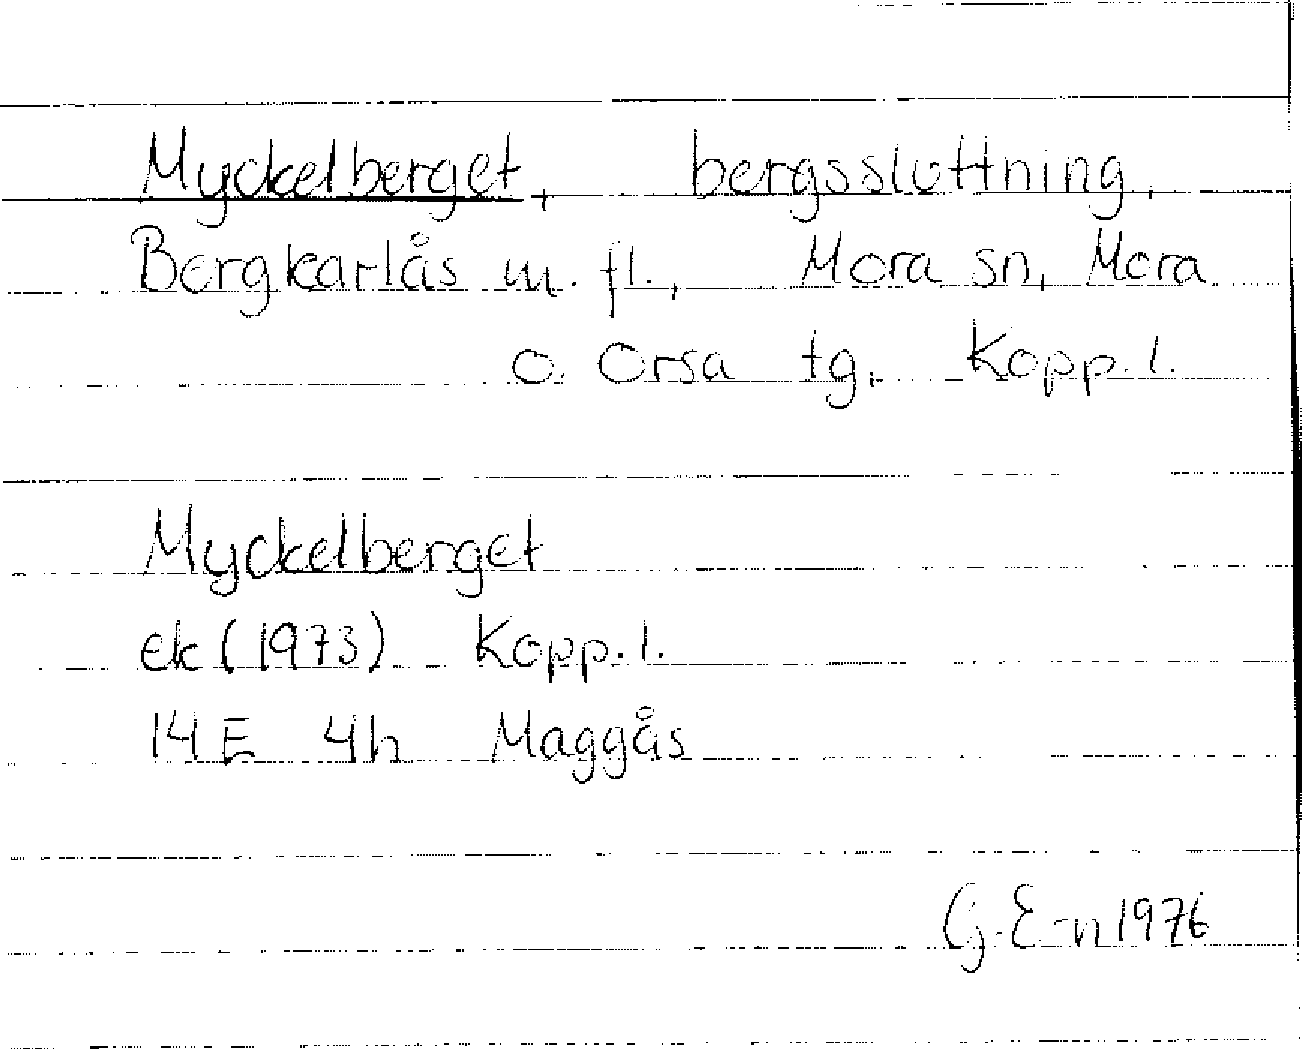 Myckelberget, bergssluttning,
Bergkarlås m. fl., Mora sn, Mora
o. Orsa tg. Kopp. l.
Myckelberget
ek (1973) Kopp. l.
14 E 4h Maggås
G. E-n 1976